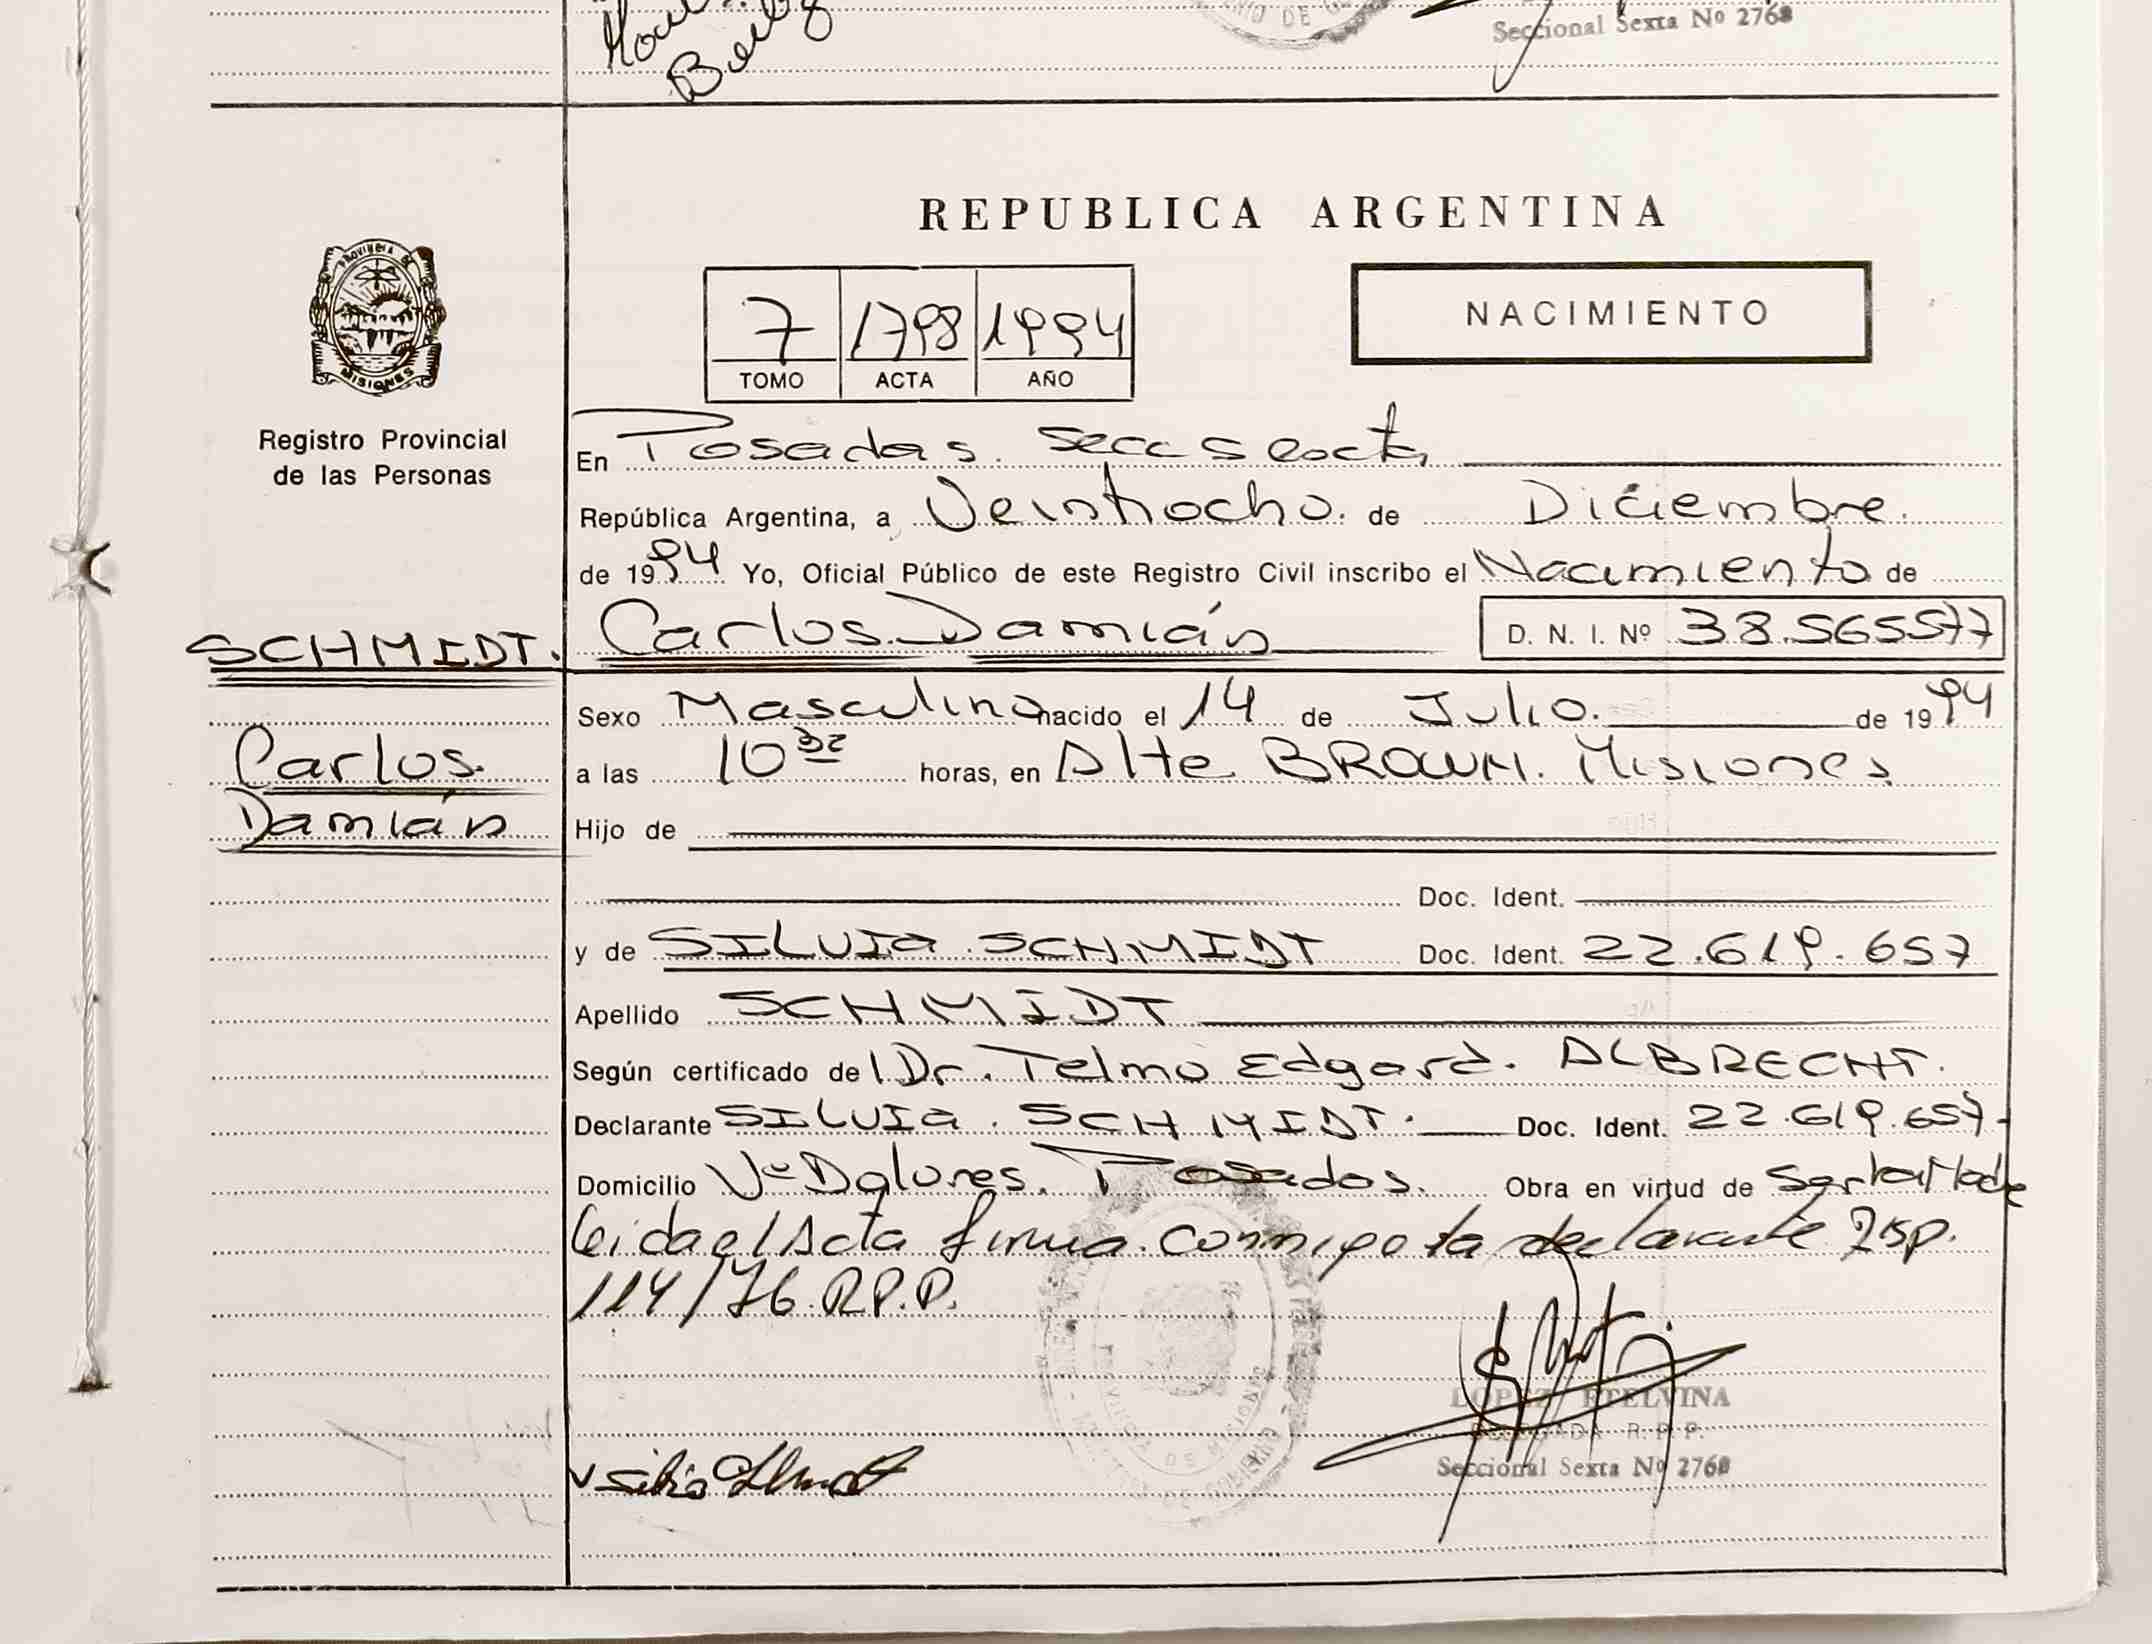 Seccional Sexta Nº 2768
REPUBLICA ARGENTINA
PROVINCIA DE
MISIONES
Registro Provincial
de las Personas
7 1798 1994
TOMO ACTA AÑO
NACIMIENTO
En Posadas. Secc Sexta
República Argentina, a Veintiocho. de Diciembre.
de 1994 Yo, Oficial Público de este Registro Civil inscribo el Nacimiento de
SCHMIDT. Carlos Damián D. N. I. Nº 38.565577
Sexo Masculino nacido el 14 de Julio. de 1994
Carlos a las 10 horas, en Alte BROWN. Misiones.
Damián Hijo de
Doc. Ident.
y de SILVIA SCHMIDT Doc. Ident. 22.619.657
Apellido SCHMIDT
Según certificado del Dr. Telmo Edgard. ALBRECHT.
Declarante SILVIA. SCHMIDT. Doc. Ident. 22.619.657-
Domicilio Vª Dolores. Posadas. Obra en virtud de ser la Madre
Leida el Acta firma conmigo la declarante Disp.
114/76.R.P.P.
LOPEZ ETELVINA
DELEGADA R. P. P.
Seccional Sexta Nº 2768